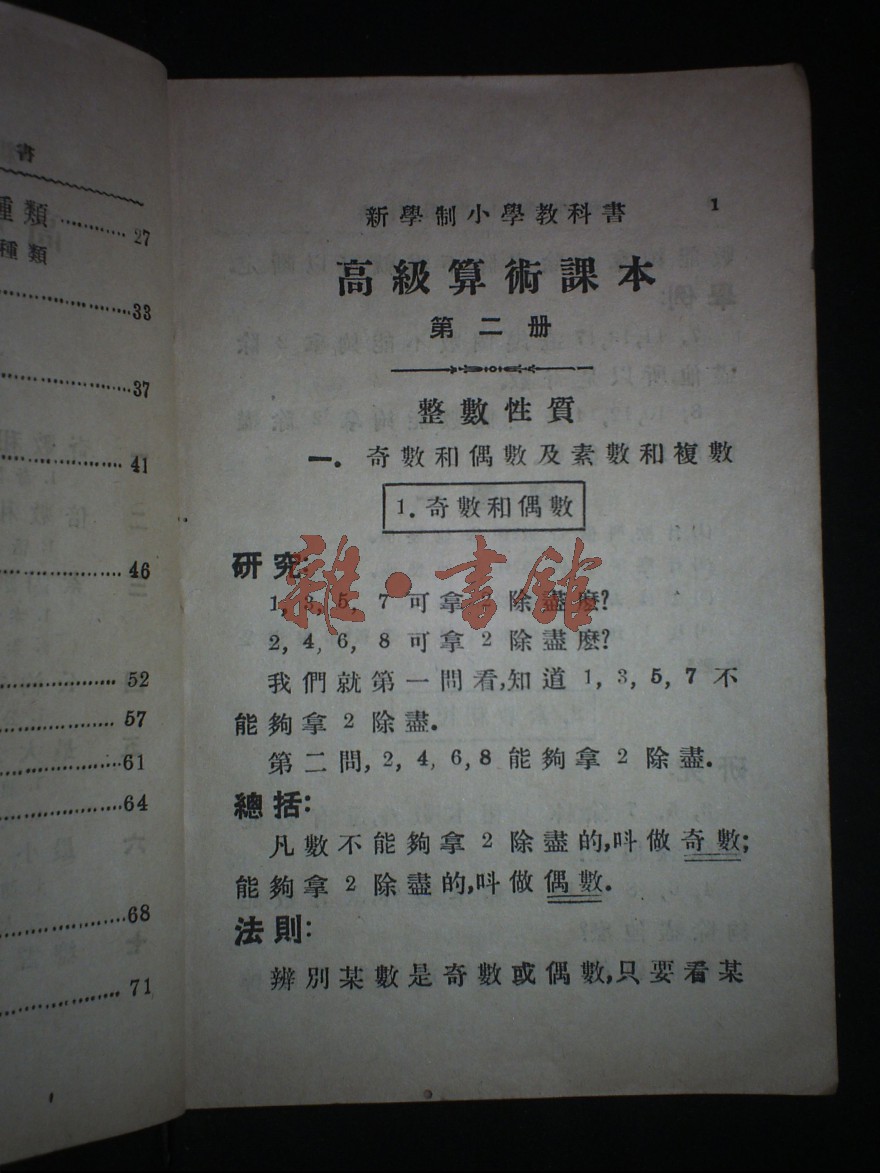 書
種類 27
種類
33
37
41
46
52
57
61
64
68
71
新學制小學教科書 1
高級算術課本
第二册
整數性質
一. 奇數和偶數及素數和複數
1. 奇數和偶數
研究:
1, 3, 5, 7 可拿 2 除盡麽?
2, 4, 6, 8 可拿 2 除盡麽?
我們就第一問看,知道 1, 3, 5, 7 不
能夠拿 2 除盡.
第二問, 2, 4, 6, 8 能夠拿 2 除盡.
總括:
凡數不能夠拿 2 除盡的,呌做奇數;
能夠拿 2 除盡的,呌做偶數.
法則:
辨別某數是奇數或偶數,只要看某
雜·書館